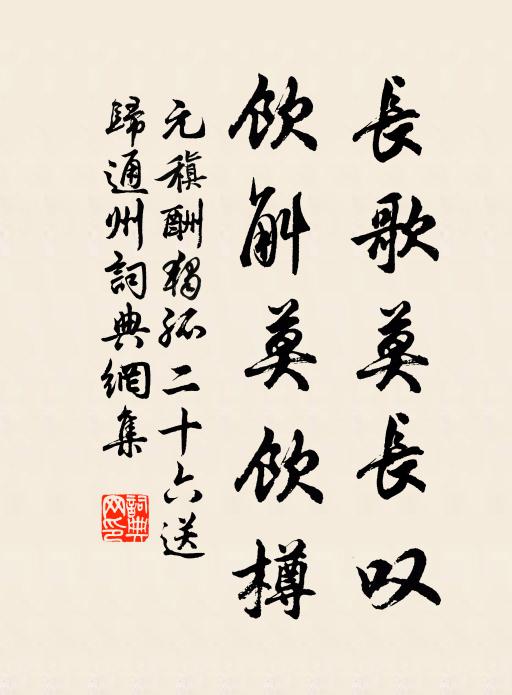 長歌莫長叹
飲斛莫飲樽
元稹酬獨孤二十六送
歸通州詞典網集
詞典
网印